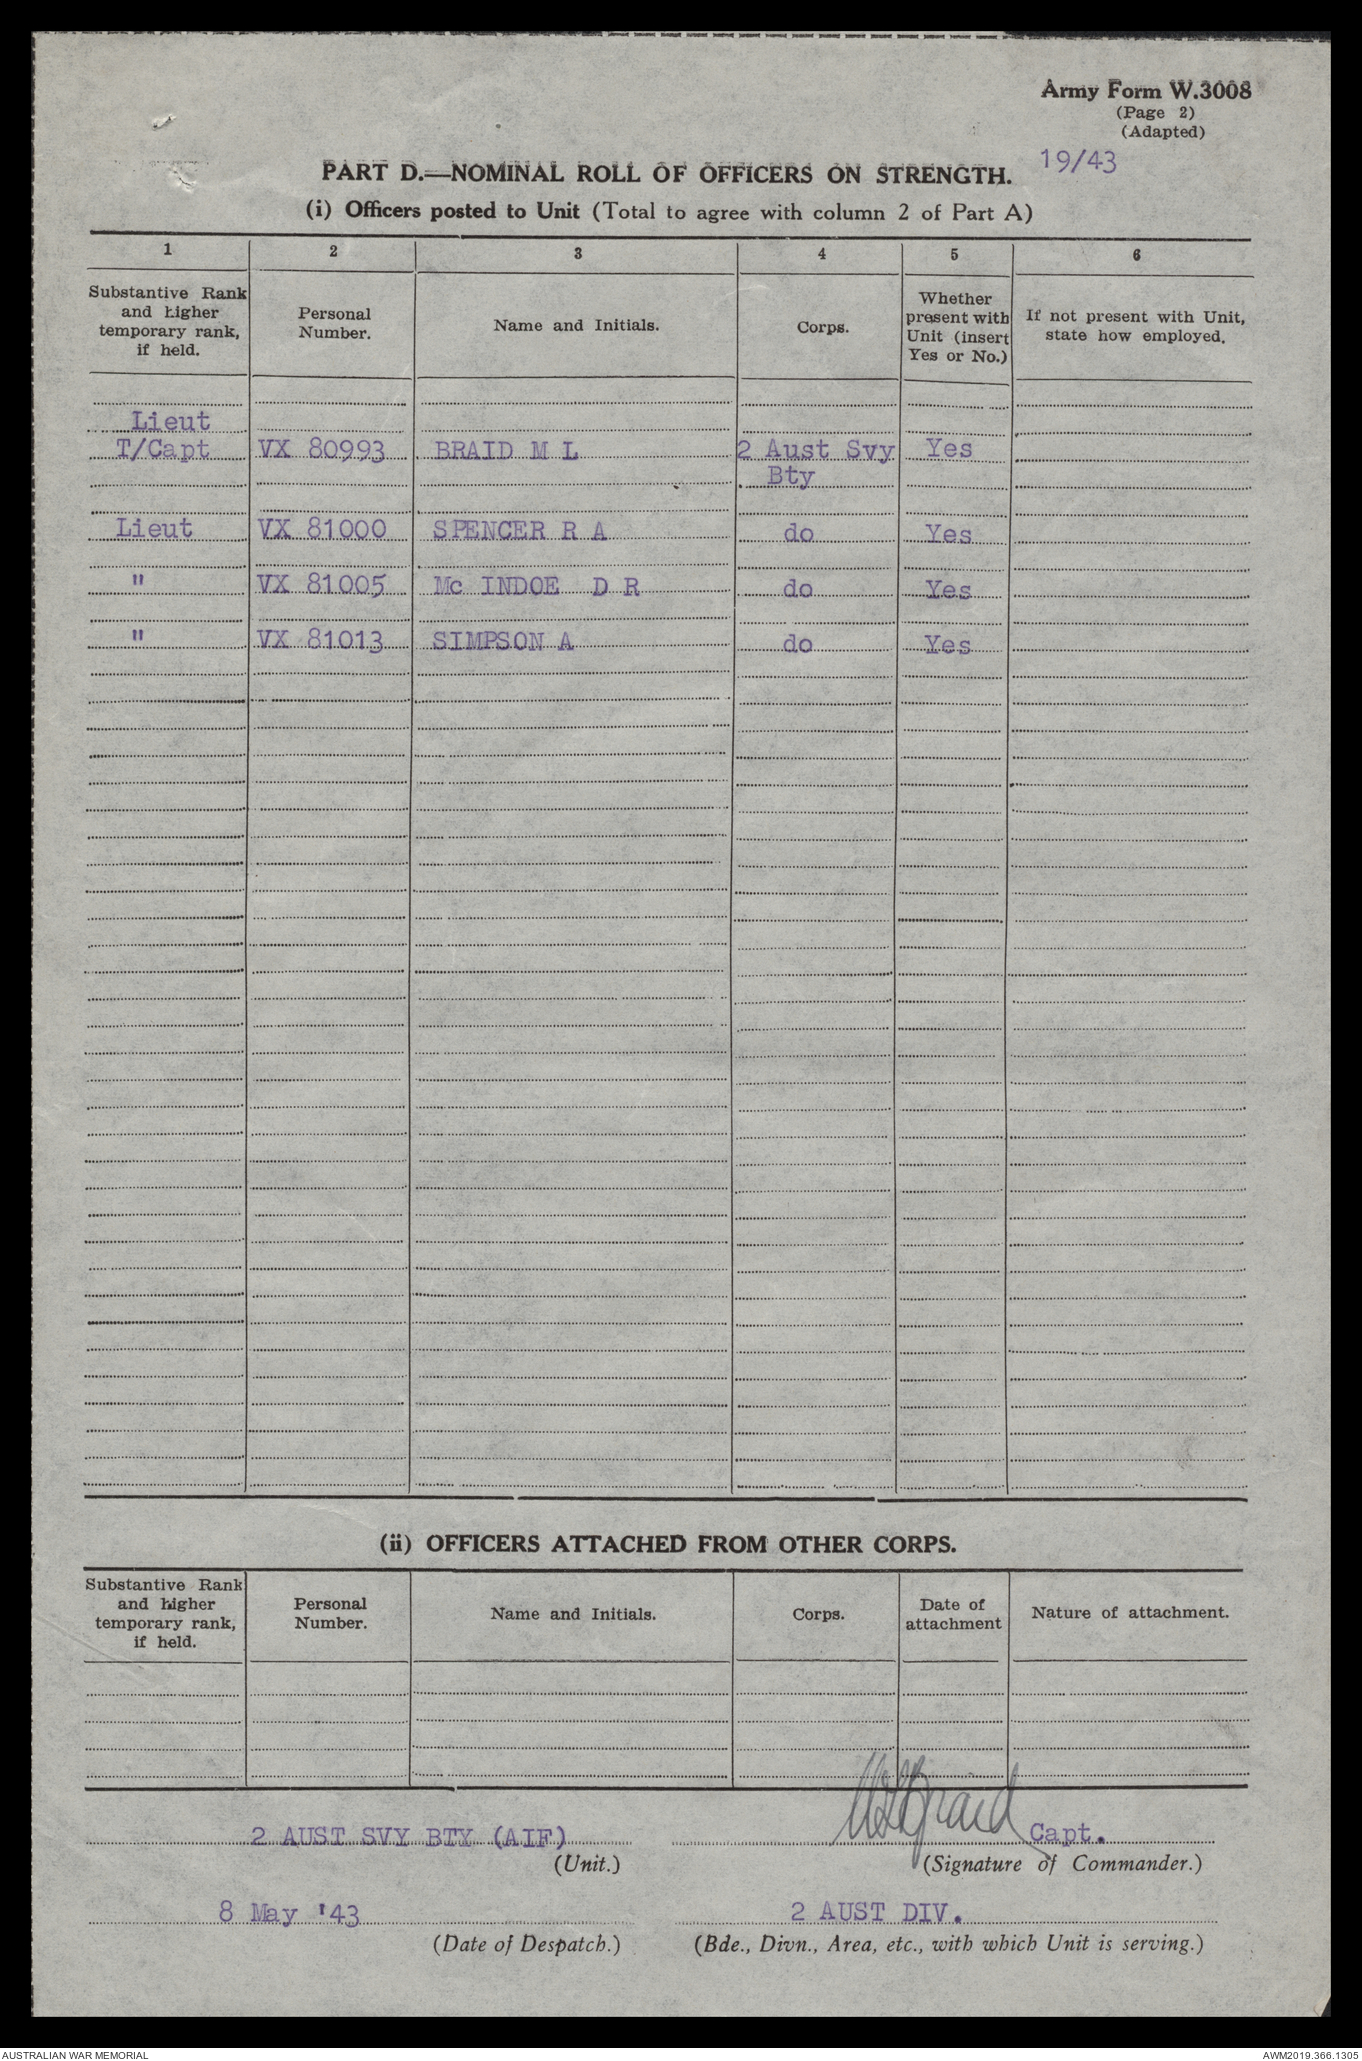 Army Form W.3008
(Page 2)
(Adapted)
19/43
PART D.—NOMINAL ROLL OF OFFICERS ON STRENGTH.
(i) Officers posted to Unit (Total to agree with column 2 of Part A)
1 2 3 4 5 6
Substantive Rank and higher temporary rank, if held.
Personal Number.
Name and Initials.
Corps.
Whether present with Unit (insert Yes or No.)
If not present with Unit, state how employed.
Lieut
T/Capt VX 80993 BRAID M L 2 Aust Svy Yes
Bty
Lieut VX 81000 SPENCER R A do Yes
" VX 81005 Mc INDOE D R do Yes
" VX 81013 SIMPSON A do Yes
(ii) OFFICERS ATTACHED FROM OTHER CORPS.
Substantive Rank and higher temporary rank, if held.
Personal Number.
Name and Initials.
Corps.
Date of attachment
Nature of attachment.
2 AUST SVY BTY (AIF)
(Unit.)
MLBraid Capt.
(Signature of Commander.)
8 May '43
(Date of Despatch.)
2 AUST DIV.
(Bde., Divn., Area, etc., with which Unit is serving.)
AUSTRALIAN WAR MEMORIAL
AWM2019.366.1305